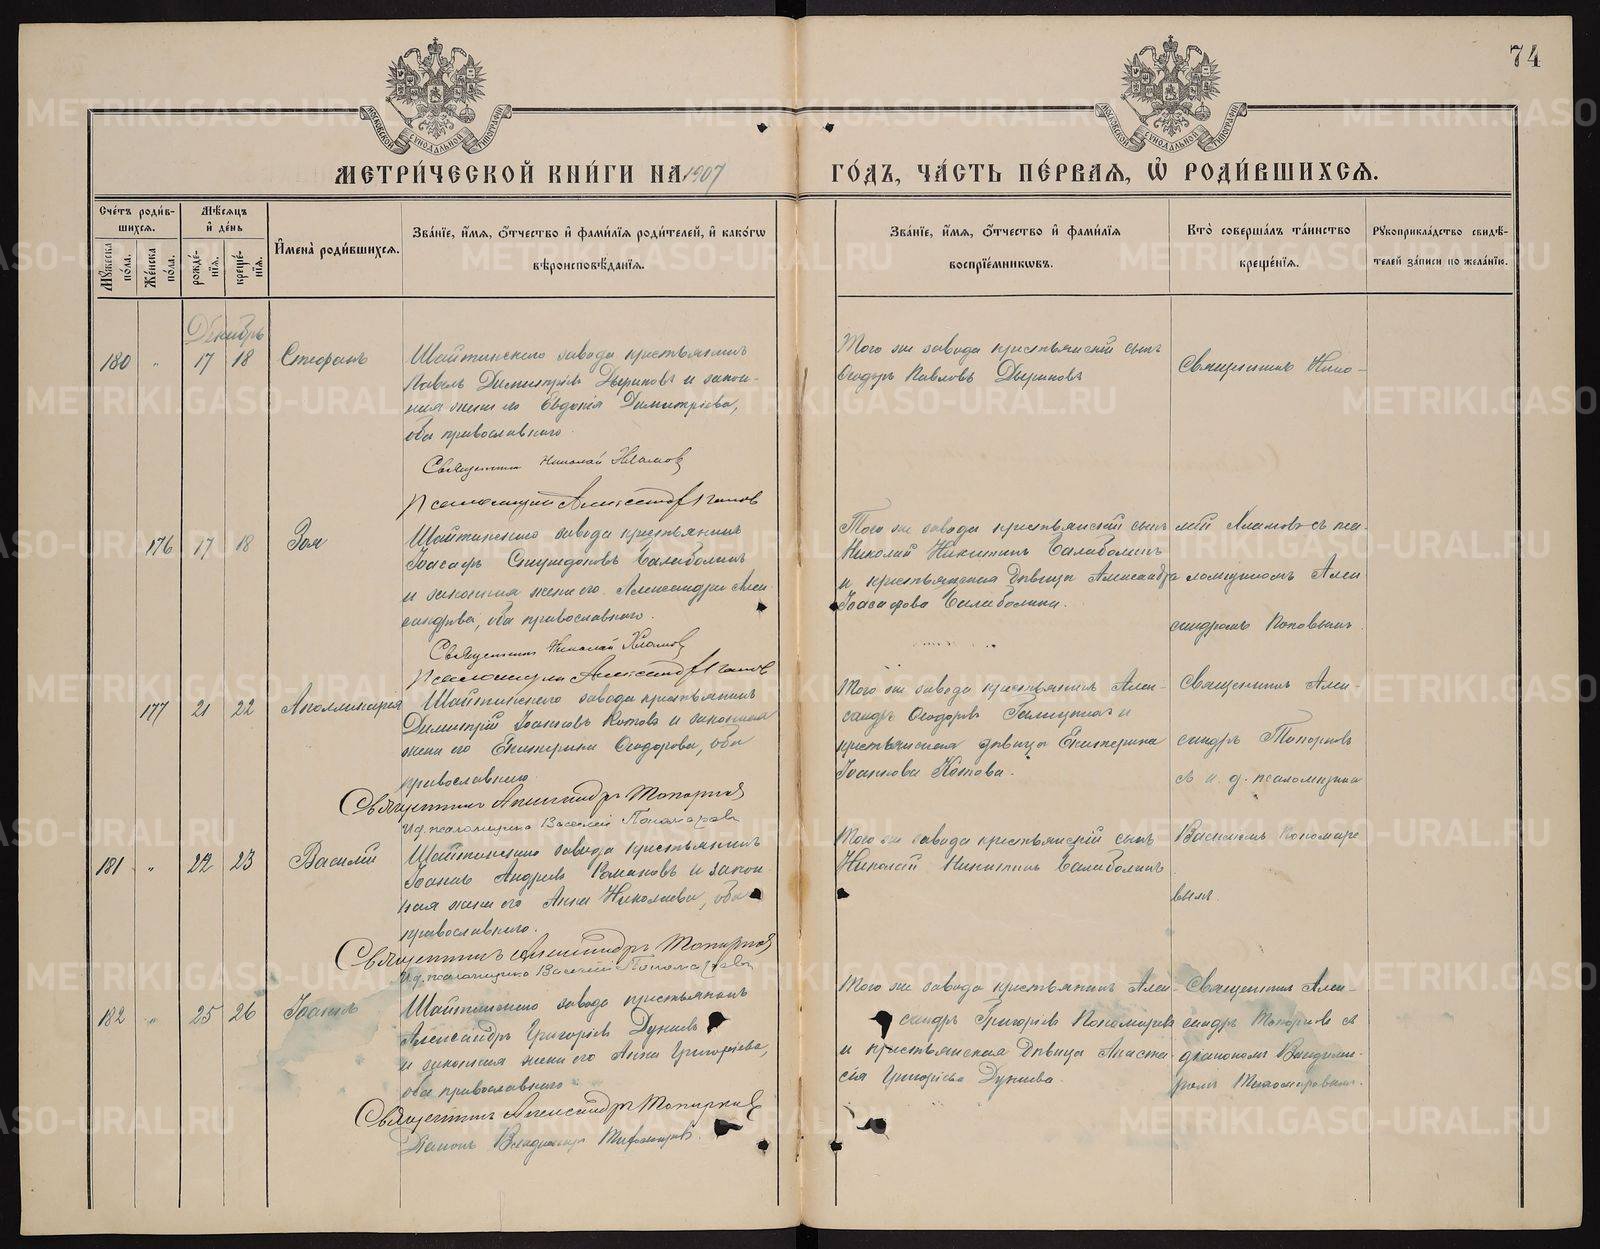 74
МОСКОВСКОЙ СѴНОДАЛЬНОЙ ТИПОГРАФІИ
МОСКОВСКОЙ СѴНОДАЛЬНОЙ ТИПОГРАФІИ
МЕТРИ́ЧЕСКОЙ КНИ́ГИ НА 1907
ГО́ДЪ, ЧА́СТЬ ПЕ́РВАЯ, Ѽ РОДИ́ВШИХСЯ.
Сче́тъ роди́в-
шихся.
Му́жеска по́ла.
Же́нска по́ла.
Мѣ́сяцъ
и҆ де́нь
рожде́-
нїя.
креще́-
нїя.
И҆мена̀ роди́вшихся.
Зва́нїе, и҆́мя, ѻ҆́тчество и҆ фами́лїя роди́телей, и҆ како́гѡ
вѣроисповѣ́данїя.
Зва́нїе, и҆́мя, ѻ҆́тчество и҆ фами́лїя
воспрїе́мникѡвъ.
Кто̀ соверша́лъ та́инство
креще́нїя.
Рꙋкоприкла́дство свидѣ́-
телей за́писи по жела́нїю.
Декабрь
180 " 17 18 Стефанъ
Шайтанскаго завода крестьянинъ
Павелъ Димитріевъ и закон-
ная жена его Евдокія Димитріева,
оба православнаго.
Священникъ Николай
Псаломщикъ Александръ Поповъ
Того же завода крестьянскій сынъ
Ѳеодоръ Павловъ
Священникъ Нико-
176 17 18 Зоя
Шайтанскаго завода крестьянинъ
Іоасафъ Спиридоновъ Балаболинъ
и законная жена его Александра Алек-
сандрова, оба православнаго.
Священникъ Николай
Псаломщикъ Александръ Поповъ
Того же завода крестьянскій сынъ
Николай Никитинъ Балаболинъ
и крестьянская дѣвица Александра
Іоасафова Балаболина.
лай съ пса-
ломщикомъ Алек-
сандромъ Поповымъ
177 21 22 Аполлинарія
Шайтанскаго завода крестьянинъ
Димитрій Іоанновъ Котовъ и законная
жена его Екатерина Ѳеодорова, оба
православнаго
Священникъ Александръ Топорковъ
И.д. псаломщика Василій Пономаревъ
Того же завода крестьянинъ Алек-
сандръ Ѳеодоровъ и
крестьянская дѣвица Екатерина
Іоаннова Котова.
Священникъ Алек-
сандръ Топорковъ
съ и. д. псаломщика
181 " 22 23 Василій
Шайтанскаго завода крестьянинъ
Іоаннъ Андреевъ Романовъ и закон-
ная жена его Анна Николаева, оба
православнаго.
Священникъ Александръ Топорковъ
И.д. псаломщика Василій Пономаревъ
Того же завода крестьянскій сынъ
Николай Никитинъ Балаболинъ
Василіемъ Пономаре-
вымъ.
182 " 25 26 Іоаннъ
Шайтанскаго завода крестьянинъ
Александръ Григорьевъ Дунаевъ
и законная жена его Анна Григорьева,
оба православнаго
Священникъ Александръ Топорковъ
Діаконъ Владиміръ
Того же завода крестьянинъ Алек-
сандръ Григорьевъ Пономаревъ
и крестьянская дѣвица Анаста-
сія Григорьева Дунаева.
Священникъ Алек-
сандръ Топорковъ съ
діакономъ Владими-
ромъ
METRIKI.GASO-URAL.RU